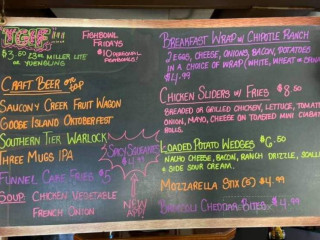 TGIF!!!
$3.50 23oz MILLER LITE
or YUENGLING
FISHBOWL
FRIDAYS
$10
FISHBOWLS!
CRAFT BEER on TAP
SAUCONY CREEK FRUIT WAGON
GOOSE ISLAND OKTOBERFEST
SOUTHERN TIER WARLOCK
THREE MUGS IPA
FUNNEL CAKE FRIES $5
SOUP: CHICKEN VEGETABLE
FRENCH ONION
SPICY
NEW
APP!
BREAKFAST WRAP w/ CHIPOTLE RANCH
2 EGGS, CHEESE, ONIONS, BACON, POTATOES
IN A CHOICE OF WRAP (WHITE, WHEAT or
$4.99
CHICKEN SLIDERS w/ FRIES $8.50
BREADED OR GRILLED CHICKEN, LETTUCE,
ONION, MAYO, CHEESE ON TOASTED MINI
ROLLS
LOADED POTATO WEDGES $6.50
NACHO CHEESE, BACON, RANCH DRIZZLE,
& SIDE SOUR CREAM
MOZZARELLA STIX (5) $4.99
BROCCOLI CHEDDAR BITES $4.99